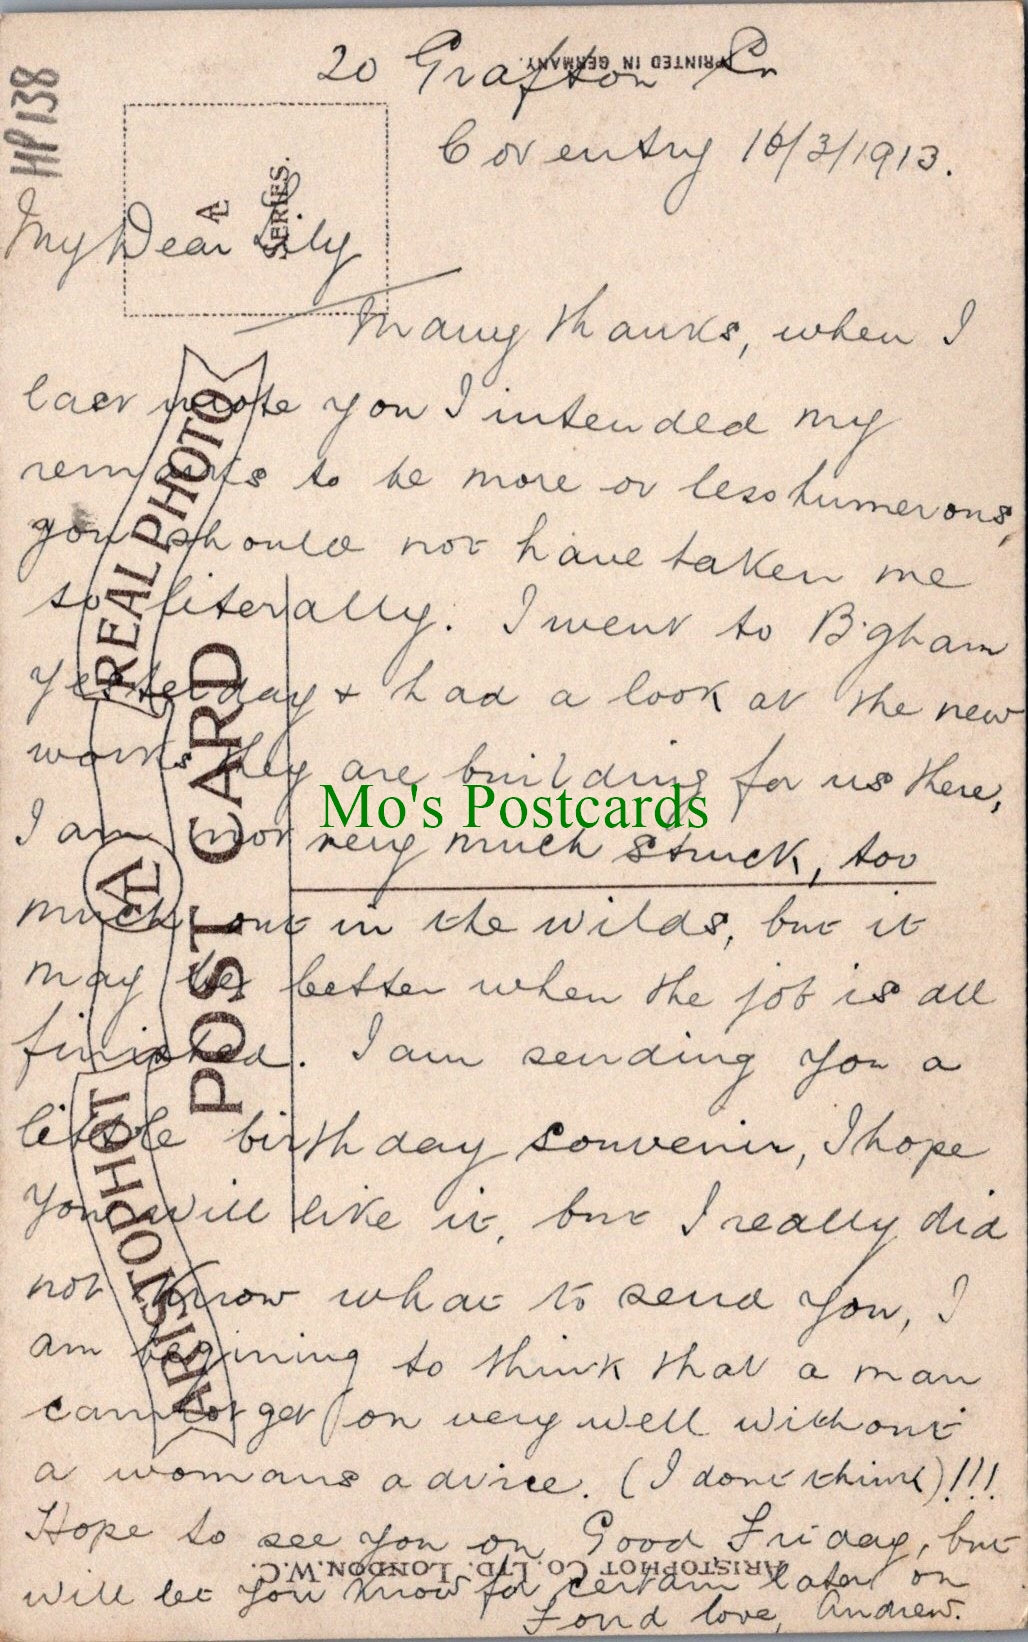 HP 138
PRINTED IN GERMANY.
20 Grafton
Coventry 16/3/1913.
Æ
SERIES.
My Dear Lily
Many thanks, when I
last wrote you I intended my
remarks to be more or less humerons,
you should not have taken me
so literally. I went to B'gham
yesterday & had a look at the new
works they are building for us there,
I am not very much struck, too
much out in the wilds, but it
may be better when the job is all
finished. I am sending you a
little birthday souvenir, I hope
you will like it, but I really did
not know what to send you, I
am begining to think that a man
cannot get on very well without
a womans advice. (I dont think)!!!
Hope to see you on Good Friday, but
will let you know for certain later on
Fond love, Andrew.
REAL PHOTO
POST CARD
Æ
ARISTOPHOT
ARISTOPHOT CO. LTD. LONDON. W.C.
Mo's Postcards